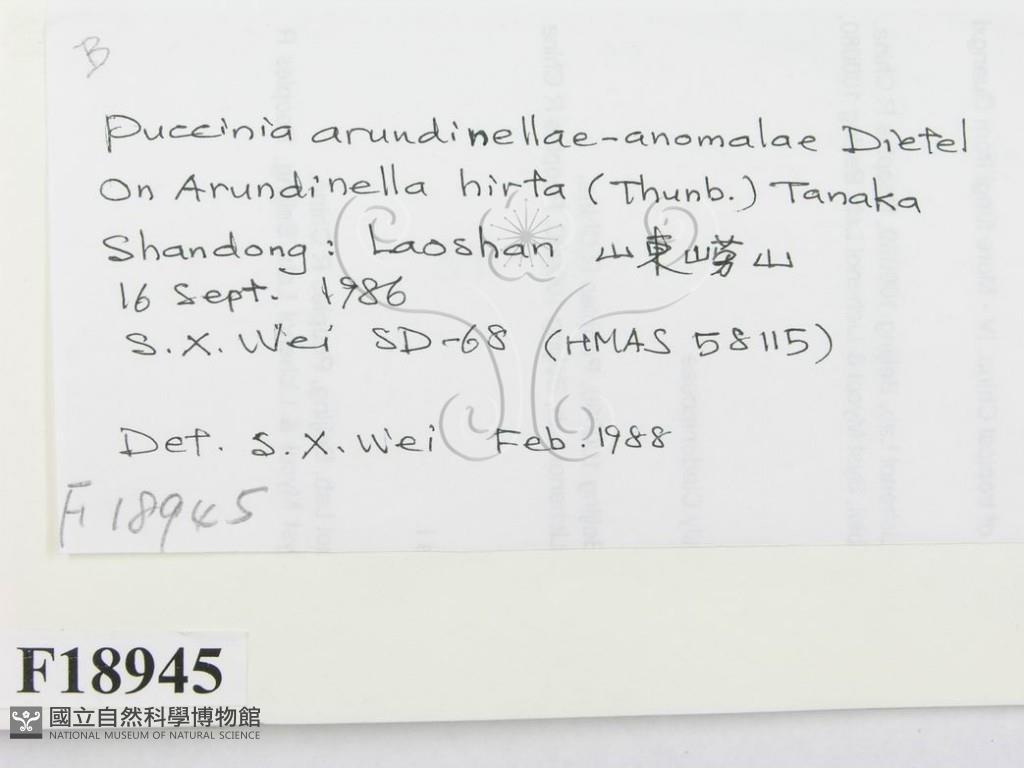 B
Puccinia arundinellae-anomalae Dietel
On Arundinella hirta (Thunb.) Tanaka
Shandong: Laoshan 山東嶗山
16 Sept. 1986
S. X. Wei SD-68 (HMAS 58115)
Det. S. X. Wei Feb. 1988
F18945
F18945
國立自然科學博物館
NATIONAL MUSEUM OF NATURAL SCIENCE